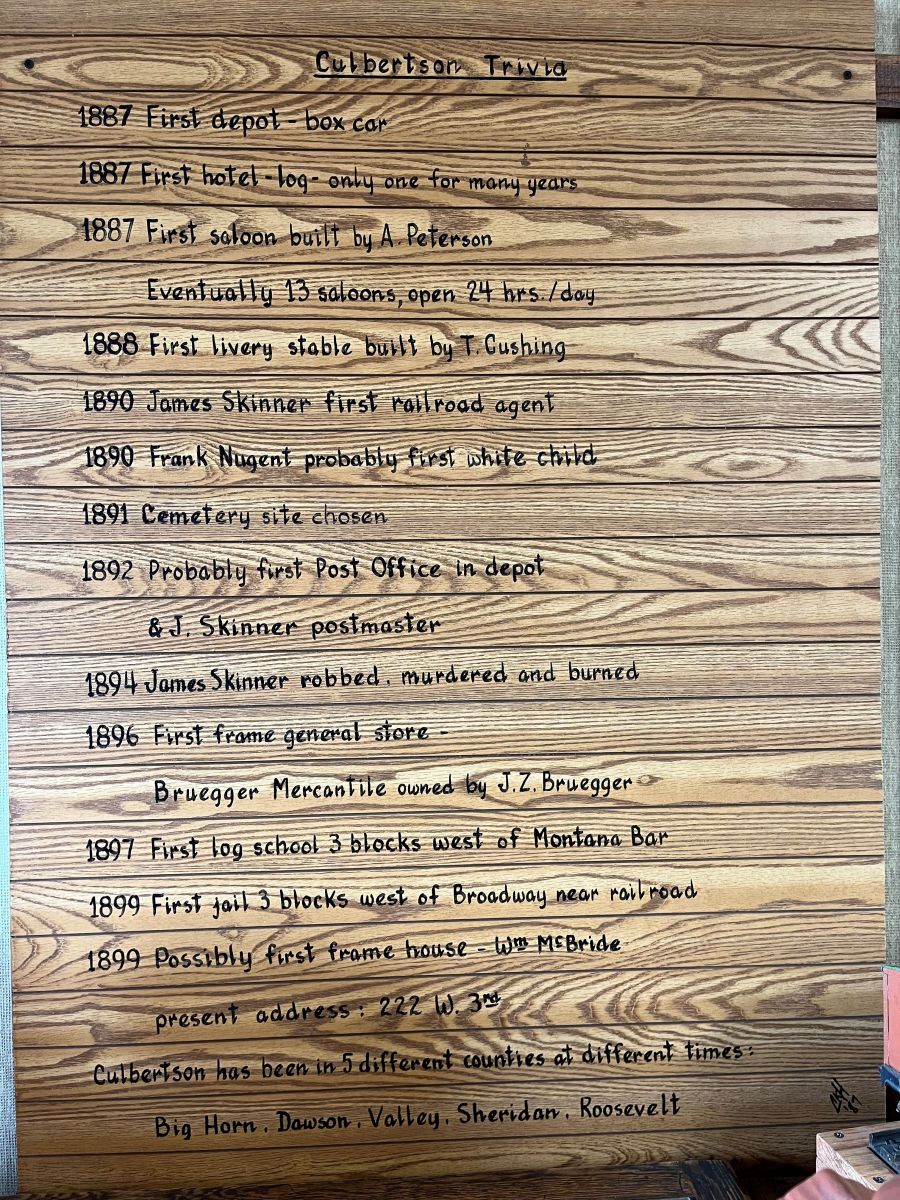 Culbertson Trivia
1887 First depot - box car
1887 First hotel - log - only one for many years
1887 First saloon built by A. Peterson
Eventually 13 saloons, open 24 hrs./day
1888 First livery stable built by T. Cushing
1890 James Skinner first railroad agent
1890 Frank Nugent probably first white child
1891 Cemetery site chosen
1892 Probably first Post Office in depot
& J. Skinner postmaster
1894 James Skinner robbed, murdered and burned
1896 First frame general store -
Bruegger Mercantile owned by J.Z. Bruegger
1897 First log school 3 blocks west of Montana Bar
1899 First jail 3 blocks west of Broadway near railroad
1899 Possibly first frame house - Wm McBride
present address: 222 W. 3rd
Culbertson has been in 5 different counties at different times:
Big Horn, Dawson, Valley, Sheridan, Roosevelt
'87